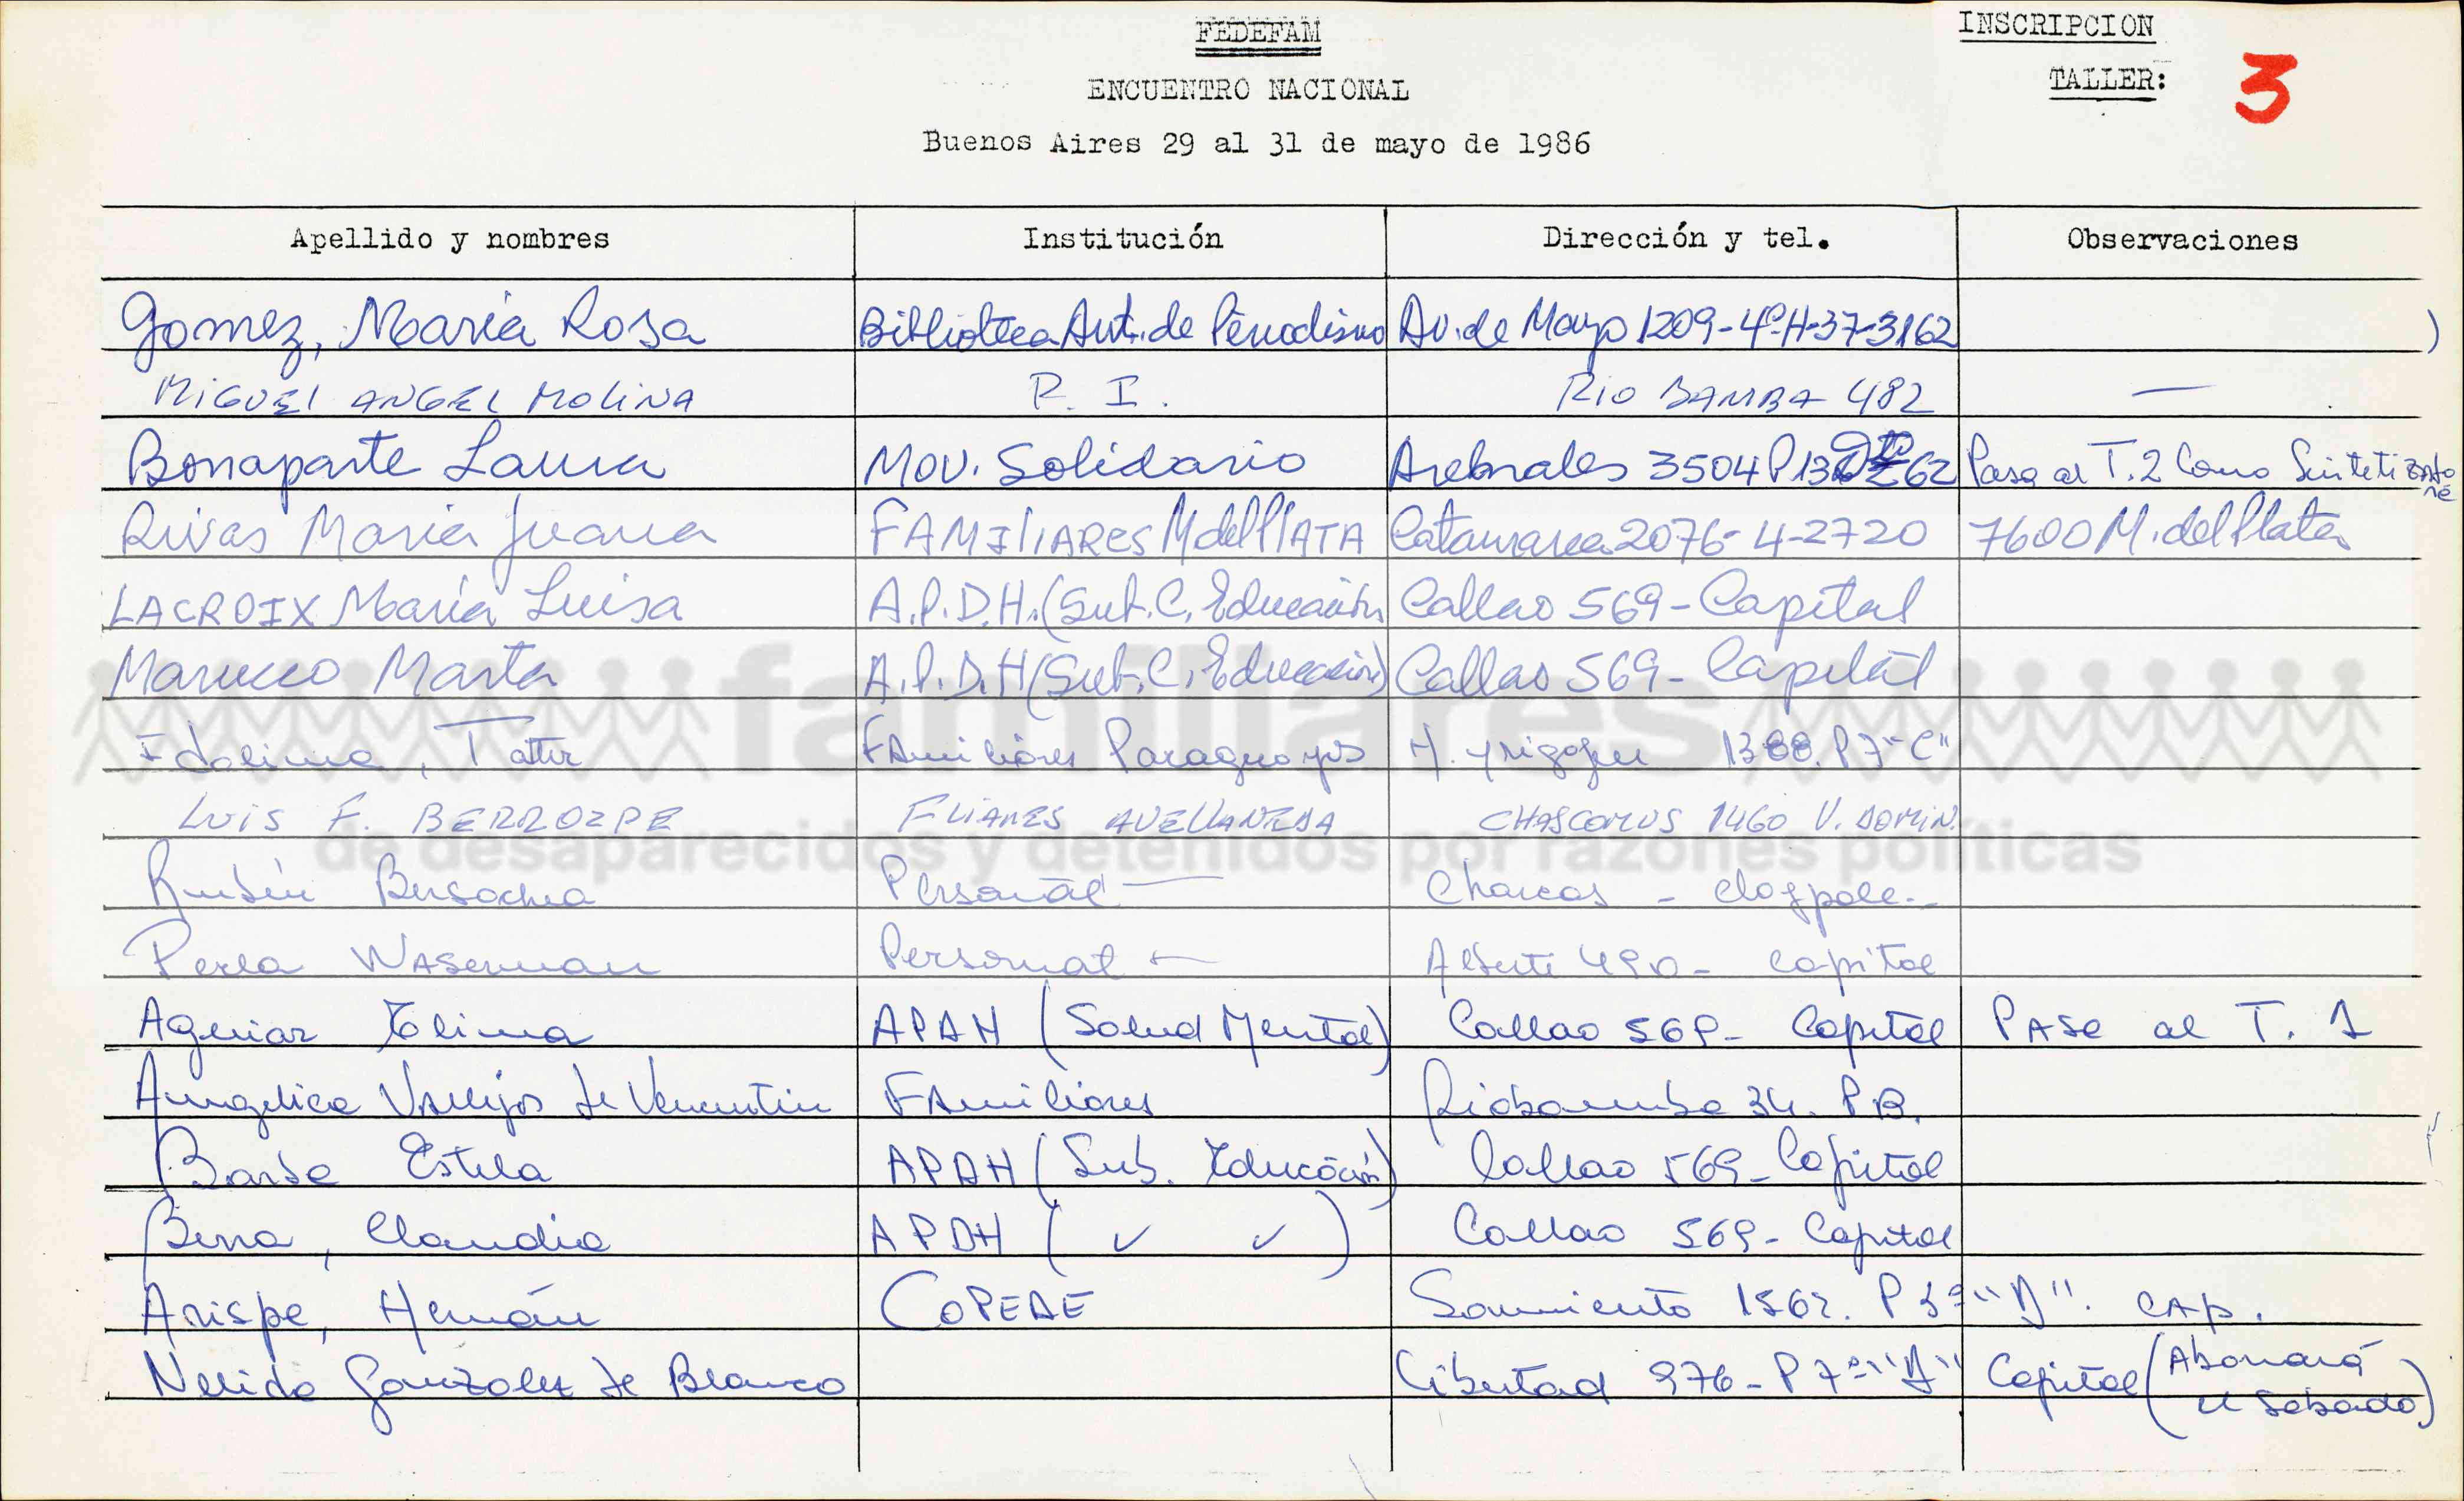 FEDEFAM
INSCRIPCION
TALLER: 3
ENCUENTRO NACIONAL
Buenos Aires 29 al 31 de mayo de 1986
Apellido y nombres Institución Dirección y tel. Observaciones
Gomez, María Rosa Biblioteca Aut. de Periodismo Av. de Mayo 1209-4º-H-37-3162
MIGUEL ANGEL MOLINA P. I. RIO BAMBA 482 —
Bonaparte Laura Mov. Solidario 3504 P13 62 Pasa al T.2 Como
Rivas María Juana FAMILIARES M del PLATA Catamarca 2076-4-2720 7600 M. del Plata
LACROIX María Luisa A.P.D.H. (Sub.C. Educación Callao 569-Capital
Marucco Marta A.P.D.H (Sub.C. Educación) Callao 569-Capital
familiares
Idalina, Familiares Paraguayos H. Yrigoyen 1388. P7 "C"
LUIS F. BERROZPE FLIARES AVELLANEDA CHASCOMUS 1460 V. DOMIN.
de desaparecidos y detenidos por razones políticas
Rubén Personal — Charcas - Claypole.-
Perla Waserman Personal — Alberti 490- Capital
Aguiar Elina APDH (Salud Mental) Callao 569- Capital PASe al T. 1
Angelica Vallejos de Familiares Riobamba 34. P.B.
Barbe Estela APDH (Sub. Educación) Callao 569-Capital
Claudia APDH ( ✓ ✓ ) Callao 569- Capital
Arispe, Hernán COPEDE Sarmiento 1562. P 3º "D". CAp.
Nelida Gonzalez de Blanco Libertad 976- P 7º "A" Capital (Abonará
el Sábado)